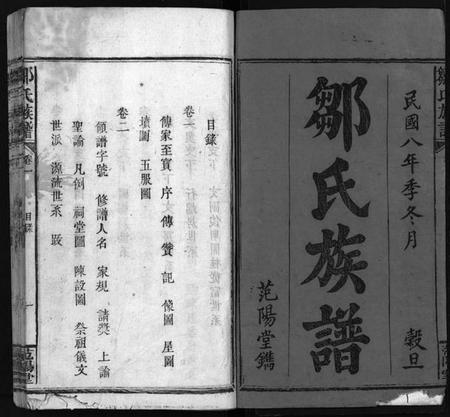 民國八年季冬月
穀旦
鄒氏族譜
范陽堂鐫
目錄
卷一
傳家至寶 序 傳 贊 記 像圖 星圖
墳圖 五服圖
卷二
領譜字號 修譜人名 家規 請獎 上諭
聖諭 凡例 祠堂圖 陳設圖 祭祖儀文
世派 源流世系 跋
鄒氏族譜
卷一
目錄
一
范陽堂